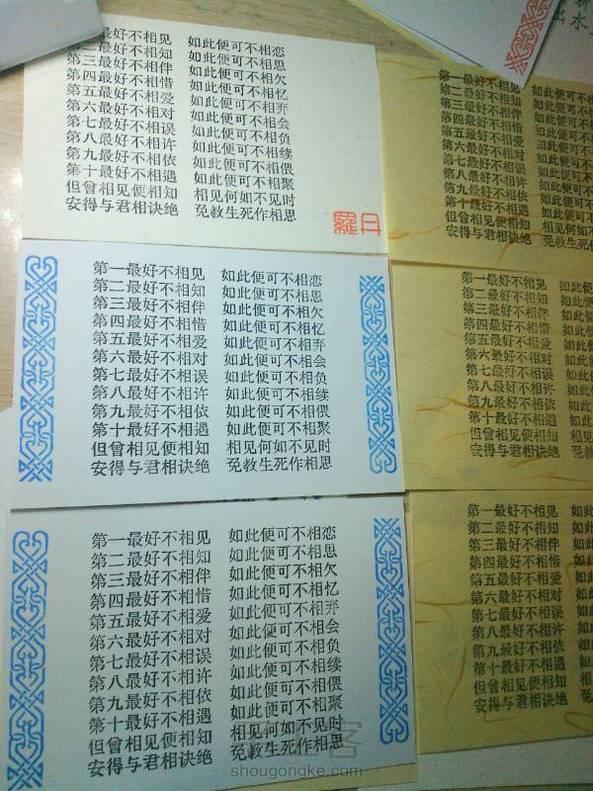 水
最好不相见 如此便可不相恋
第二最好不相知 如此便可不相思
第三最好不相伴 如此便可不相欠
第四最好不相惜 如此便可不相忆
第五最好不相爱 如此便可不相弃
第六最好不相对 如此便可不相会
第七最好不相误 如此便可不相负
第八最好不相许 如此便可不相续
第九最好不相依 如此便可不相偎
第十最好不相遇 如此便可不相聚
但曾相见便相知 相见何如不见时
安得与君相诀绝 免教生死作相思
羅丹
第一最好不相见 如此便可不相
第二最好不相知 如此便可不相
第三最好不相伴 如此便可不相
第四最好不相惜 如此便可不相
第五最好不相爱 如此便可不相
第六最好不相对 如此便可不相
第七最好不相误 如此便可不相
第八最好不相许 如此便可不相
第九最好不相依 如此便可不相
第十最好不相遇 如此便可不相
但曾相见便相知 相见何如不见
安得与君相诀绝 免教生死作
第一最好不相见 如此便可不相恋
第二最好不相知 如此便可不相思
第三最好不相伴 如此便可不相欠
第四最好不相惜 如此便可不相忆
第五最好不相爱 如此便可不相弃
第六最好不相对 如此便可不相会
第七最好不相误 如此便可不相负
第八最好不相许 如此便可不相续
第九最好不相依 如此便可不相偎
第十最好不相遇 如此便可不相聚
但曾相见便相知 相见何如不见时
安得与君相诀绝 免教生死作相思
第一最好不相见 如此
第二最好不相知 如此
第三最好不相伴 如此
第四最好不相惜 如此
第五最好不相爱 如此
第六最好不相对 如此
第七最好不相误 如此
第八最好不相许 如此
第九最好不相依 如此
第十最好不相遇 如此
但曾相见便相知 相见
安得与君相诀绝 免
第一最好不相见 如此便可不相恋
第二最好不相知 如此便可不相思
第三最好不相伴 如此便可不相欠
第四最好不相惜 如此便可不相忆
第五最好不相爱 如此便可不相弃
第六最好不相对 如此便可不相会
第七最好不相误 如此便可不相负
第八最好不相许 如此便可不相续
第九最好不相依 如此便可不相偎
第十最好不相遇 如此便可不相聚
但曾相见便相知 相见何如不见时
安得与君相诀绝 免教生死作相思
第一最好不相见 如
第二最好不相知 如
第三最好不相伴 如
第四最好不相惜 如
第五最好不相爱 如
第六最好不相对 如
第七最好不相误 如
第八最好不相许 如
第九最好不相依 如
第十最好不相遇 如
但曾相见便相知 相
安得与君相诀绝 免
shougongke.com